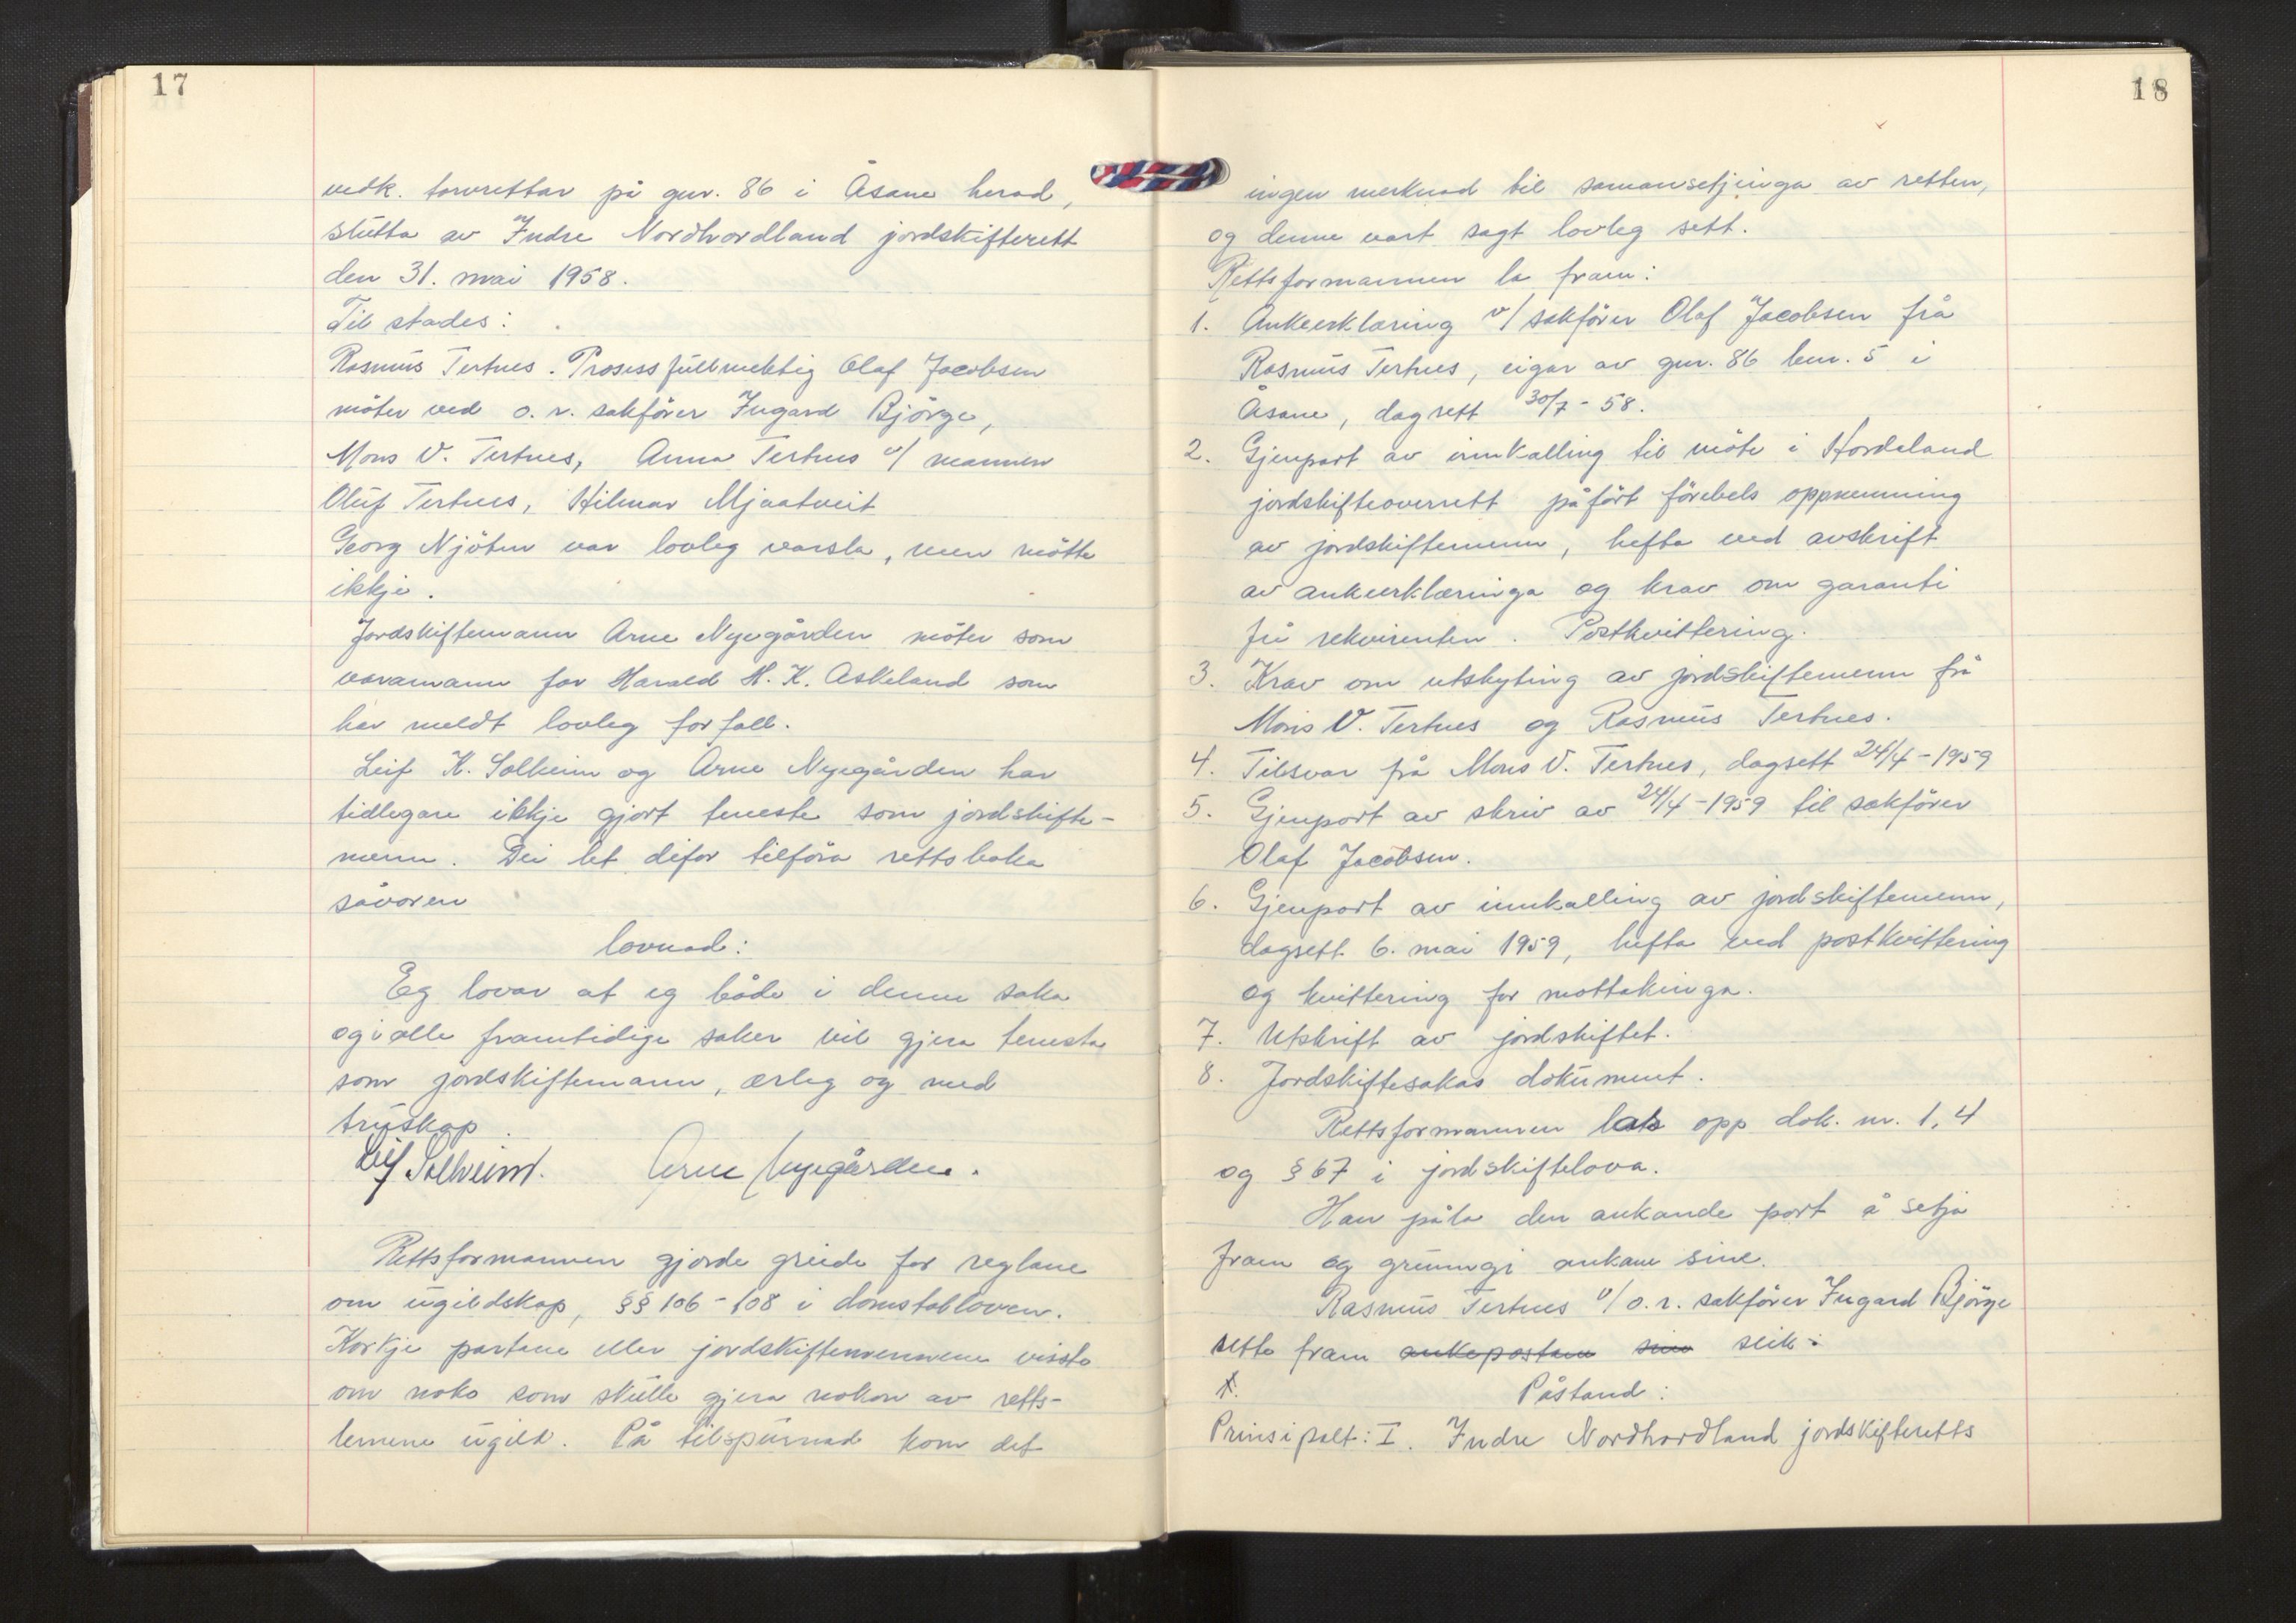 17
vedk. torvrettar på gnr. 86 i Åsane herad,
slutta av Indre Nordhordland jordskifterett
den 31. mai 1958.
Til stades:
Rasmus Tertnes. Prosessfullmektig Olaf Jacobsen
møter ved o.r. sakfører Ingard Bjørge,
Mons V. Tertnes, Anna Tertnes v/ mannen
Oluf Tertnes, Hilmar Mjaatveit
Georg Njøten var lovleg varsla, men møtte
ikkje.
Jordskiftemann Arne Nyegården møter som
varamann for Harald H. K. Askeland som
har meldt lovleg forfall.
Leif K. Solheim og Arne Nyegården har
tidlegare ikkje gjort teneste som jordskifte-
menn. Dei let difor tilføra rettsboka
såvoren
lovnad:
Eg lovar at eg både i denne saka
og i alle framtidige saker vil gjera tenesta
som jordskiftemann, ærleg og med
truskap.
Leif Solheim. Arne Nyegården.
Rettsformannen gjorde greide for reglane
om ugildskap, §§ 106-108 i domstolloven.
Korkje partane eller jordskiftemennene visste
om noko som skulle gjera nokon av retts-
lemene ugild. På tilspurnad kom det
18
ingen merknad til samansetjinga av retten,
og denne vart sagt lovleg sett.
Rettsformannen la fram:
1. Ankeerklæring v/ sakfører Olaf Jacobsen frå
Rasmus Tertnes, eigar av gnr. 86 bnr. 5 i
Åsane, dagsett 30/7-58.
2. Gjenpart av innkalling til møte i Hordaland
jordskifteoverrett påført førebels oppnemning
av jordskiftemenn, hefta ved avskrift
av ankeerklæringa og krav om garanti
frå rekvirenten. Postkvittering.
3. Krav om utskyting av jordskiftemenn frå
Mons V. Tertnes og Rasmus Tertnes.
4. Tilsvar frå Mons V. Tertnes, dagsett 24/4-1959
5. Gjenpart av skriv av 24/4-1959 til sakfører
Olaf Jacobsen.
6. Gjenpart av innkalling av jordskiftemenn,
dagsett 6. mai 1959, hefta ved postkvittering
og kvittering for mottakinga.
7. Utskrift av jordskiftet.
8. Jordskiftesakas dokument.
Rettsformannen las opp dok. nr. 1, 4
og § 67 i jordskiftelova.
Han påla den ankande part å setja
fram og grunngi ankane sine.
Rasmus Tertnes v/ o.r. sakfører Ingard Bjørge
sette fram ankepostane sine slik:
1. Påstand:
Prinsipalt: I. Indre Nordhordland jordskifteretts